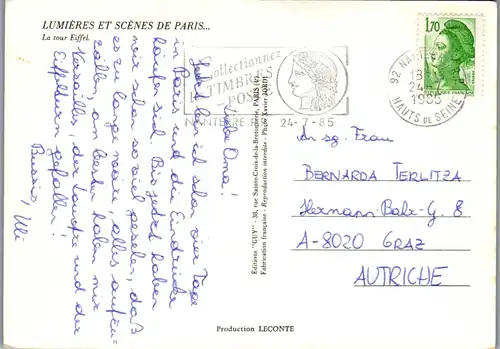 LUMIÈRES ET SCÈNES DE PARIS...
La tour Eiffel.
Liebe Oma!
Jetzt bin ich schon vier Tage
in Paris und die Eindrücke
häufen sich. Bis jetzt haben
wir schon so viel gesehen, daß
es zu lange wäre, alles aufzu-
zählen, am besten haben mir
Versailles, der Louvre und der
Eiffelturm gefallen!
Bussi, Uli
Collectionnez
les TIMBRES
-POSTE
NANTERRE
24-7-85
92 NANTERRE
18
24-7
1985
HAUTS DE SEINE
1,70
REPUBLIQUE FRANCAISE
Éditions "GUY" - 38, rue Sainte-Croix-de-la-Bretonnerie, PARIS (4e)
Fabrication française - Reproduction interdite - Photo Xavier JARDI
An sg. Frau
BERNARDA TERLITZA
Hermann-Bahr-G. 8
A-8020 GRAZ
AUTRICHE
Production LECONTE